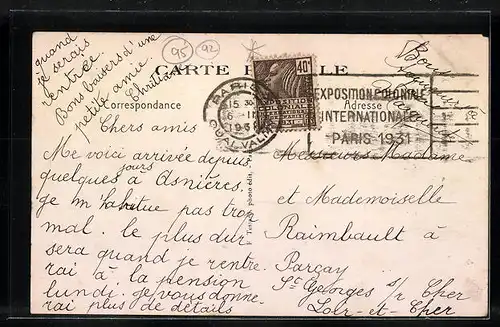 quand
je serais
rentrée.
Bons baisers d'une
petite amie
Christiane
95
92
CARTE POSTALE
40c
PARIS
15 30
6 - II
1931
QUAI-VALMY
EXPOSITION COLONIALE
INTERNATIONALE
PARIS 1931
Correspondance
Adresse
Bons
Chers amis
Me voici arrivée depuis
quelques jours à Asnières.
je m'habitue pas trop
mal. le plus dur
sera quand je rentre-
rai à la pension
lundi. je vous donne-
rai plus de détails
Messieurs Madame
et Mademoiselle
Raimbault à
Parçay
St Georges s/r Cher
Loir-et-Cher